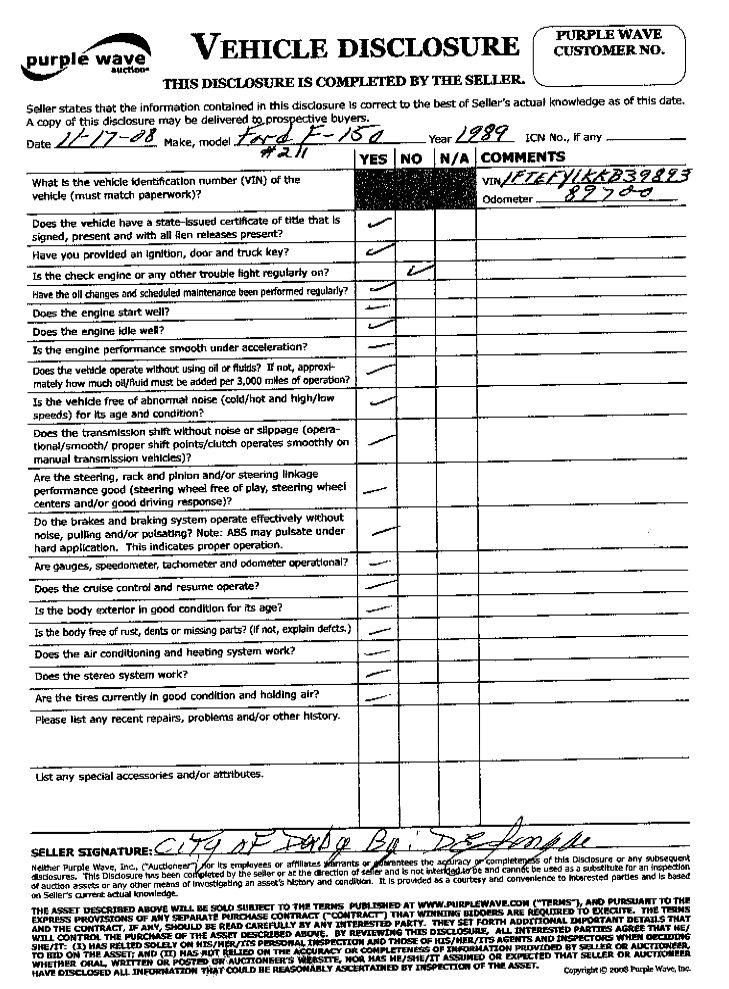 purple wave
auction
VEHICLE DISCLOSURE
PURPLE WAVE
CUSTOMER NO.
THIS DISCLOSURE IS COMPLETED BY THE SELLER.
Seller states that the information contained in this disclosure is correct to the best of Seller's actual knowledge as of this date.
A copy of this disclosure may be delivered to prospective buyers.
Date 11-17-08 Make, model Ford F-150 Year 1989 ICN No., if any
#211
YES NO N/A COMMENTS
What is the vehicle identification number (VIN) of the
vehicle (must match paperwork)?
VIN 1FTEFY1KKB39893
Odometer 89700
Does the vehicle have a state-issued certificate of title that is
signed, present and with all lien releases present?
Have you provided an ignition, door and truck key?
Is the check engine or any other trouble light regularly on?
Have the oil changes and scheduled maintenance been performed regularly?
Does the engine start well?
Does the engine idle well?
Is the engine performance smooth under acceleration?
Does the vehicle operate without using oil or fluids? If not, approxi-
mately how much oil/fluid must be added per 3,000 miles of operation?
Is the vehicle free of abnormal noise (cold/hot and high/low
speeds) for its age and condition?
Does the transmission shift without noise or slippage (opera-
tional/smooth/ proper shift points/clutch operates smoothly on
manual transmission vehicles)?
Are the steering, rack and pinion and/or steering linkage
performance good (steering wheel free of play, steering wheel
centers and/or good driving response)?
Do the brakes and braking system operate effectively without
noise, pulling and/or pulsating? Note: ABS may pulsate under
hard application. This indicates proper operation.
Are gauges, speedometer, tachometer and odometer operational?
Does the cruise control and resume operate?
Is the body exterior in good condition for its age?
Is the body free of rust, dents or missing parts? (If not, explain defcts.)
Does the air conditioning and heating system work?
Does the stereo system work?
Are the tires currently in good condition and holding air?
Please list any recent repairs, problems and/or other history.
List any special accessories and/or attributes.
SELLER SIGNATURE: City of By:
Neither Purple Wave, Inc., ("Auctioneer") nor its employees or affiliates warrants or guarantees the accuracy or completeness of this Disclosure or any subsequent
disclosures. This Disclosure has been completed by the seller or at the direction of seller and is not intended to be and cannot be used as a substitute for an inspection
of auction assets or any other means of investigating an asset's history and condition. It is provided as a courtesy and convenience to interested parties and is based
on Seller's current actual knowledge.
THE ASSET DESCRIBED ABOVE WILL BE SOLD SUBJECT TO THE TERMS PUBLISHED AT WWW.PURPLEWAVE.COM ("TERMS"), AND PURSUANT TO THE
EXPRESS PROVISIONS OF ANY SEPARATE PURCHASE CONTRACT ("CONTRACT") THAT WINNING BIDDERS ARE REQUIRED TO EXECUTE. THE TERMS
AND THE CONTRACT, IF ANY, SHOULD BE READ CAREFULLY BY ANY INTERESTED PARTY. THEY SET FORTH ADDITIONAL IMPORTANT DETAILS THAT
WILL CONTROL THE PURCHASE OF THE ASSET DESCRIBED ABOVE. BY REVIEWING THIS DISCLOSURE, ALL INTERESTED PARTIES AGREE THAT HE/
SHE/IT: (I) HAS RELIED SOLELY ON HIS/HER/ITS PERSONAL INSPECTION AND THOSE OF HIS/HER/ITS AGENTS AND INSPECTORS WHEN DECIDING
TO BID ON THE ASSET; AND (II) HAS NOT RELIED ON THE ACCURACY OR COMPLETENESS OF INFORMATION PROVIDED BY SELLER OR AUCTIONEER,
WHETHER ORAL, WRITTEN OR POSTED ON AUCTIONEER'S WEBSITE, NOR HAS HE/SHE/IT ASSUMED OR EXPECTED THAT SELLER OR AUCTIONEER
HAVE DISCLOSED ALL INFORMATION THAT COULD BE REASONABLY ASCERTAINED BY INSPECTION OF THE ASSET.
Copyright © 2008 Purple Wave, Inc.